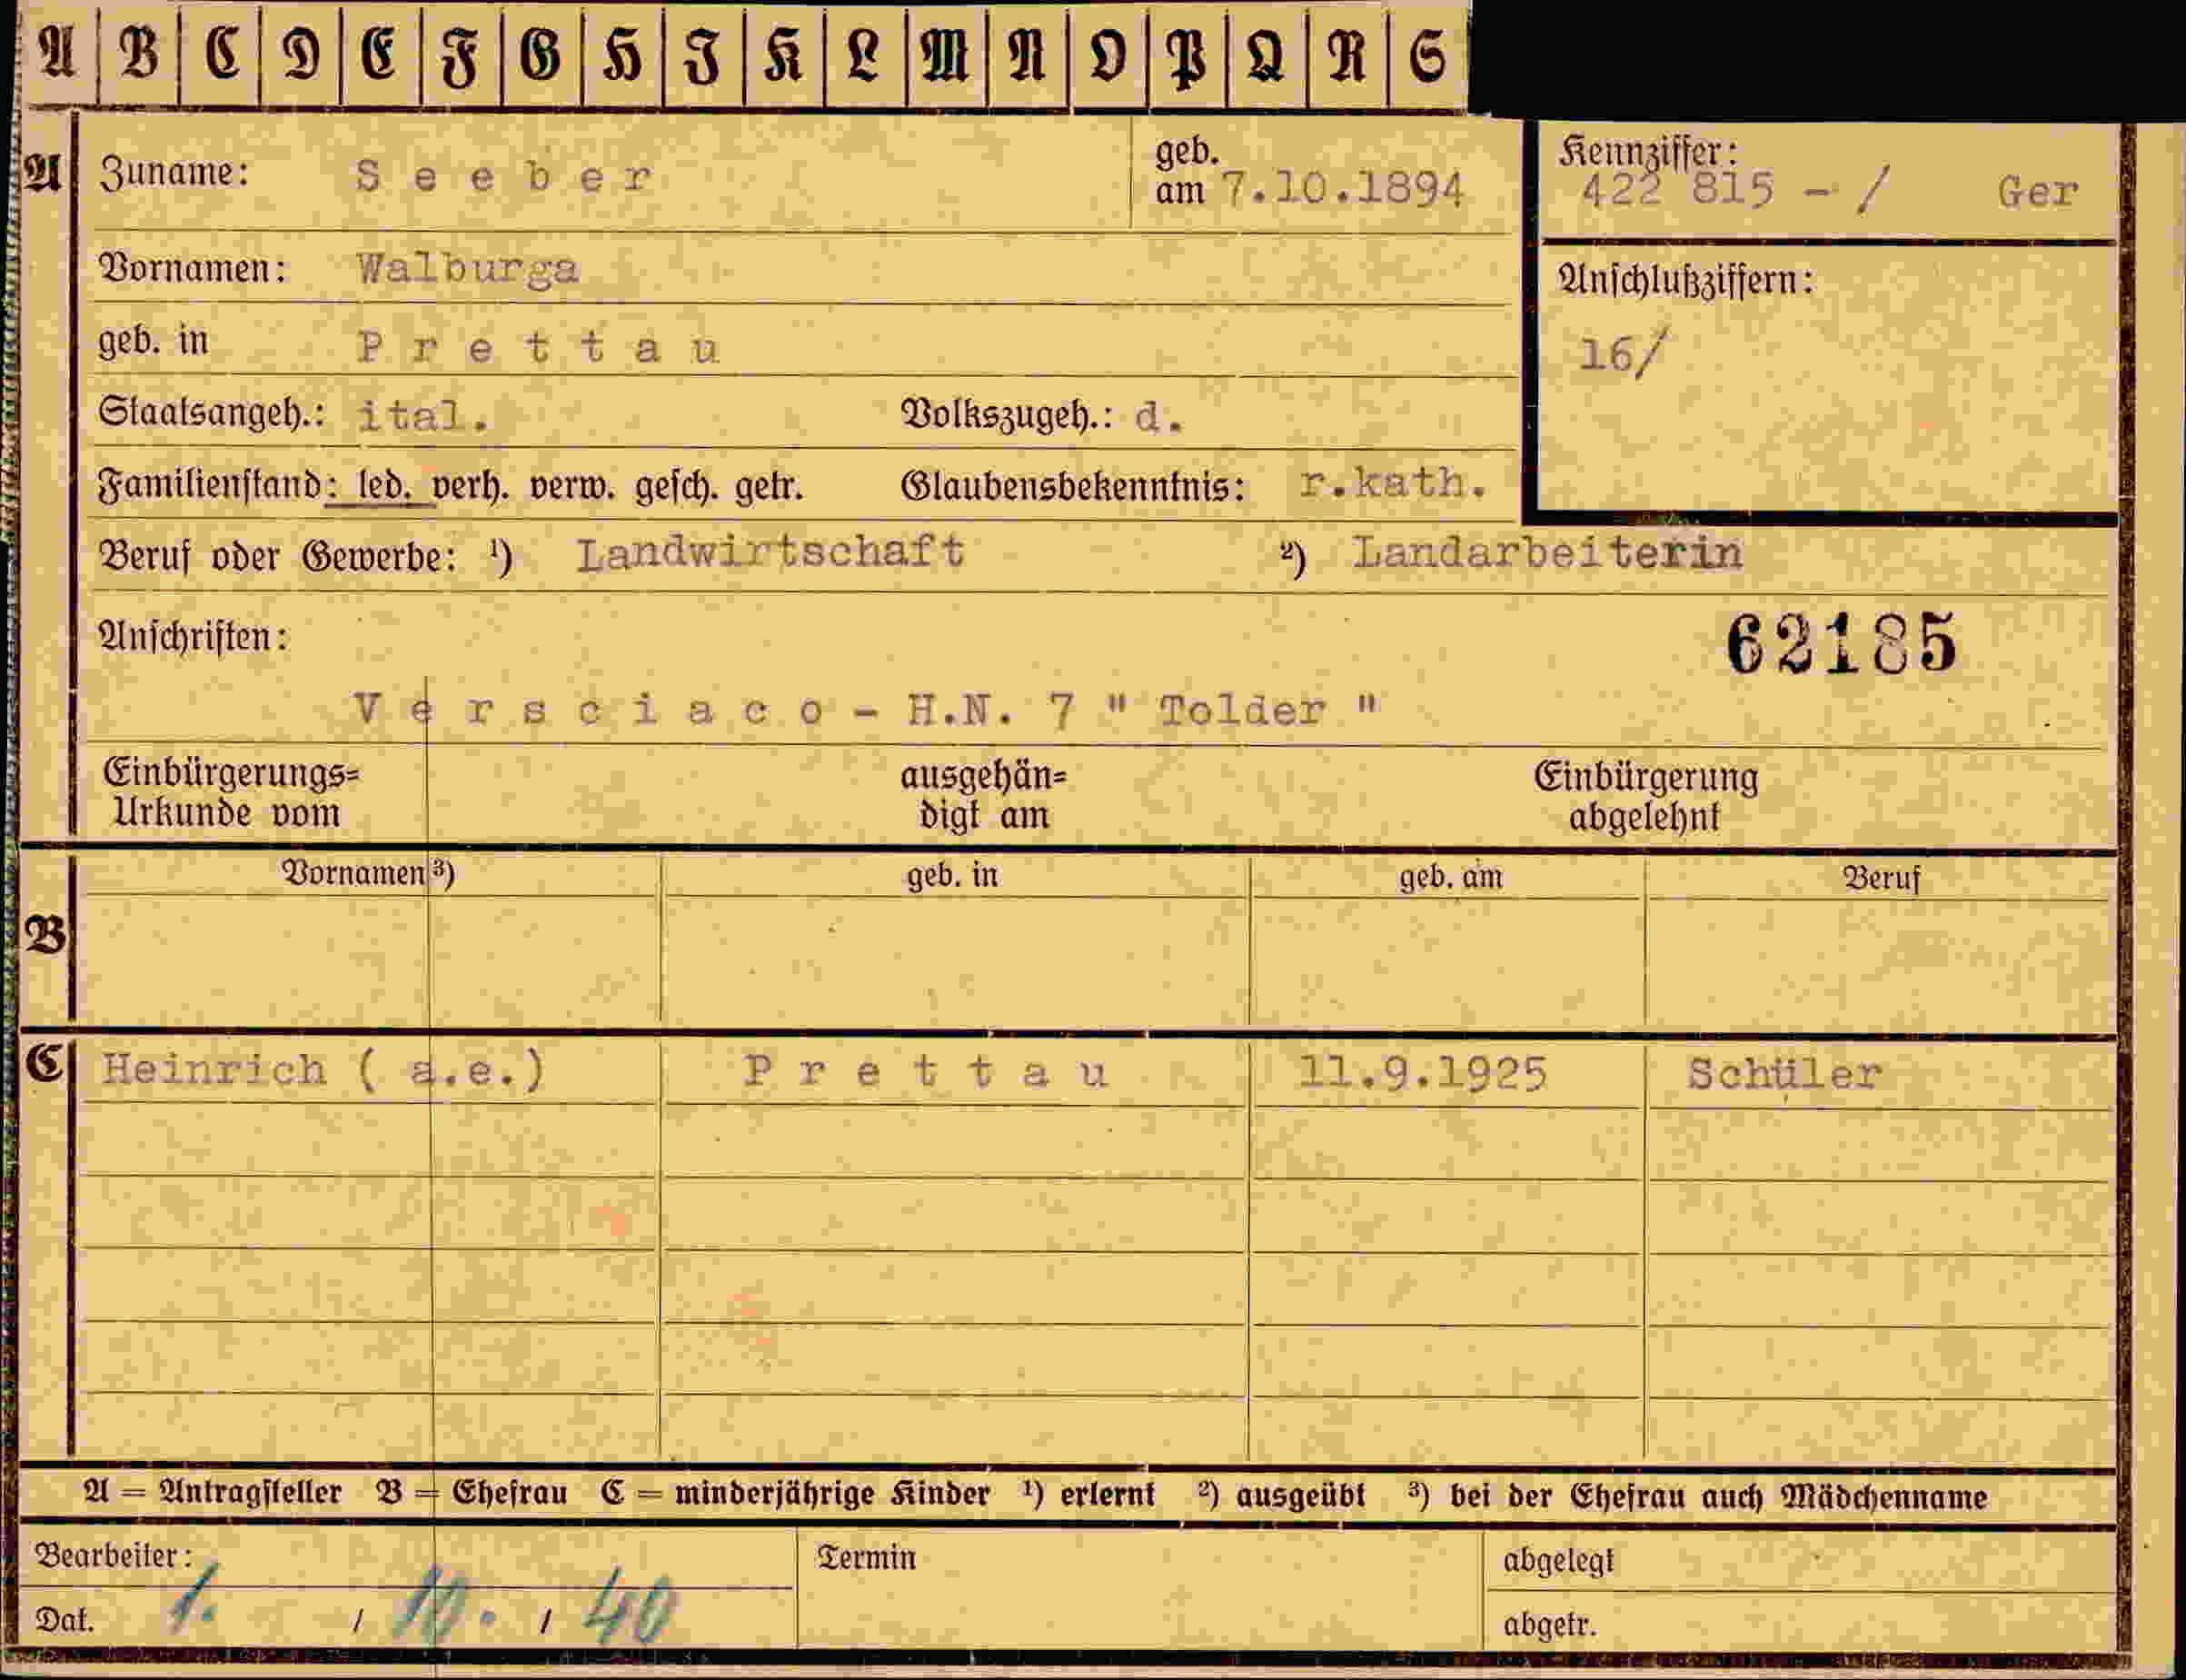 A B C D E F G H I K L M N O P Q R S
A Zuname: Seeber geb. am 7.10.1894
Kennziffer:
422 815 - / Ger
Vornamen: Walburga
Anschlußziffern:
16/
geb. in Prettau
Staatsangeh.: ital. Volkszugeh.: d.
Familienstand: led. verh. verw. gesch. getr. Glaubensbekenntnis: r.kath.
Beruf oder Gewerbe: ¹) Landwirtschaft ²) Landarbeiterin
Anschriften:
62185
Versciaco - H.N. 7 " Tolder "
Einbürgerungs= ausgehän= Einbürgerung
Urkunde vom digt am abgelehnt
Vornamen ³) geb. in geb. am Beruf
B
C Heinrich ( a.e.) Prettau 11.9.1925 Schüler
A = Antragsteller B = Ehefrau C = minderjährige Kinder ¹) erlernt ²) ausgeübt ³) bei der Ehefrau auch Mädchenname
Bearbeiter: Termin abgelegt
Dat. 1. / 10. / 40 abgetr.